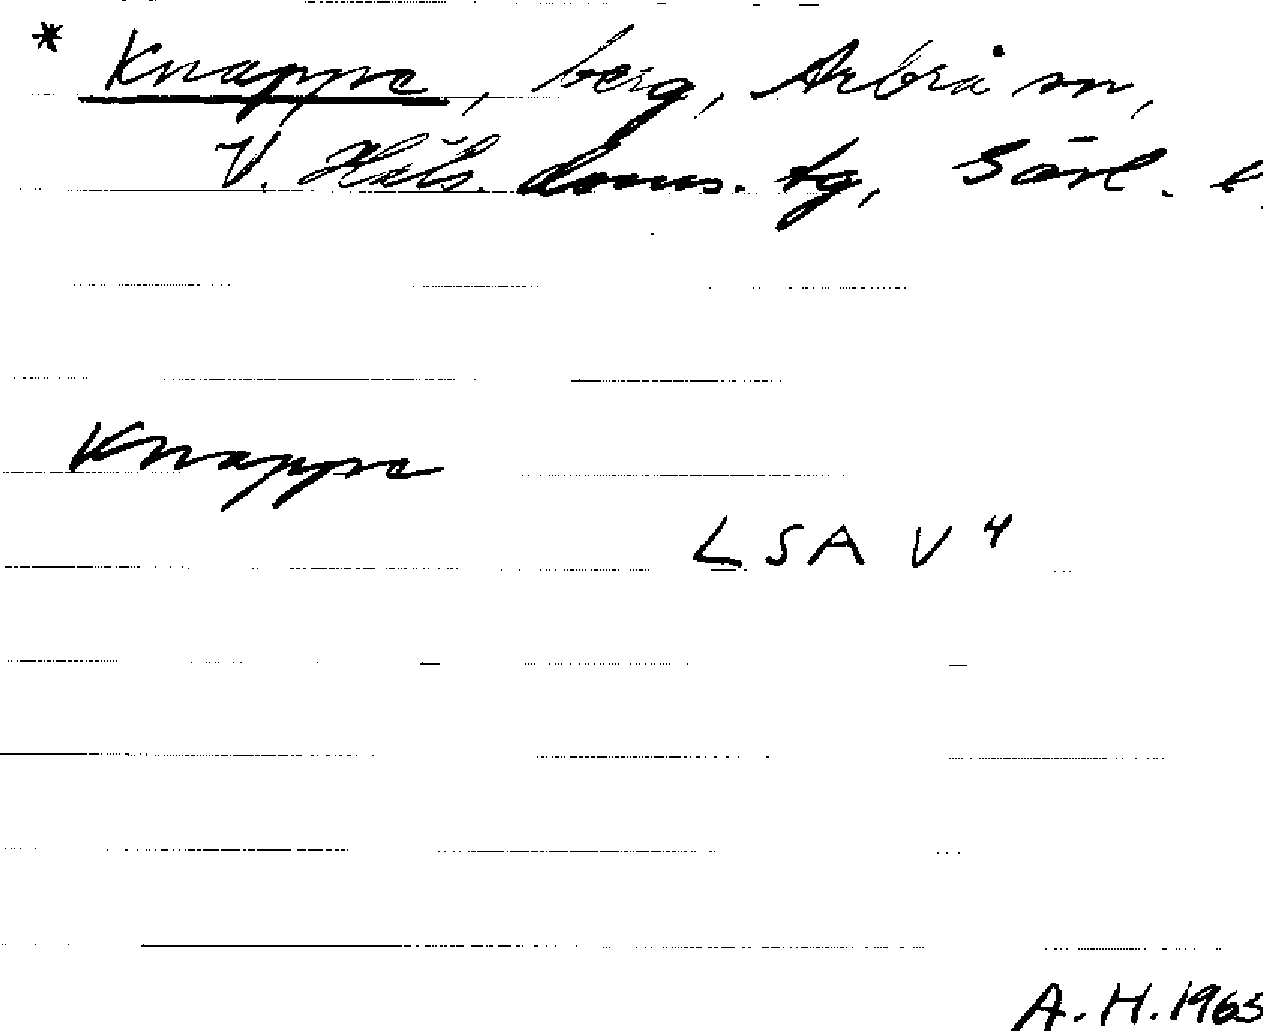 * Knappe, berg, Arbrå sn,
V. Häls. doms. tg, Gävl. l.
Knappe
LSA V4
A.H. 1965